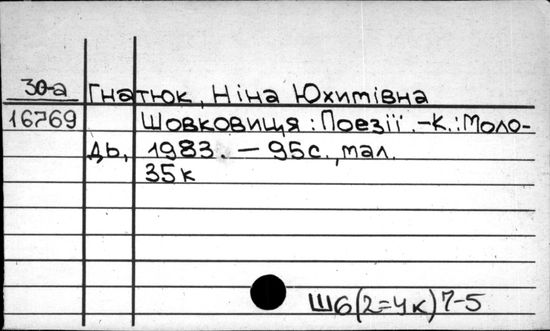 30-а Гнатюк, Ніна Юхимівна
16769 Шовковиця : Поезії. – К. : Моло-
дь, 1983. – 95с., мал.
35к
Ш6(2=Ук)7-5